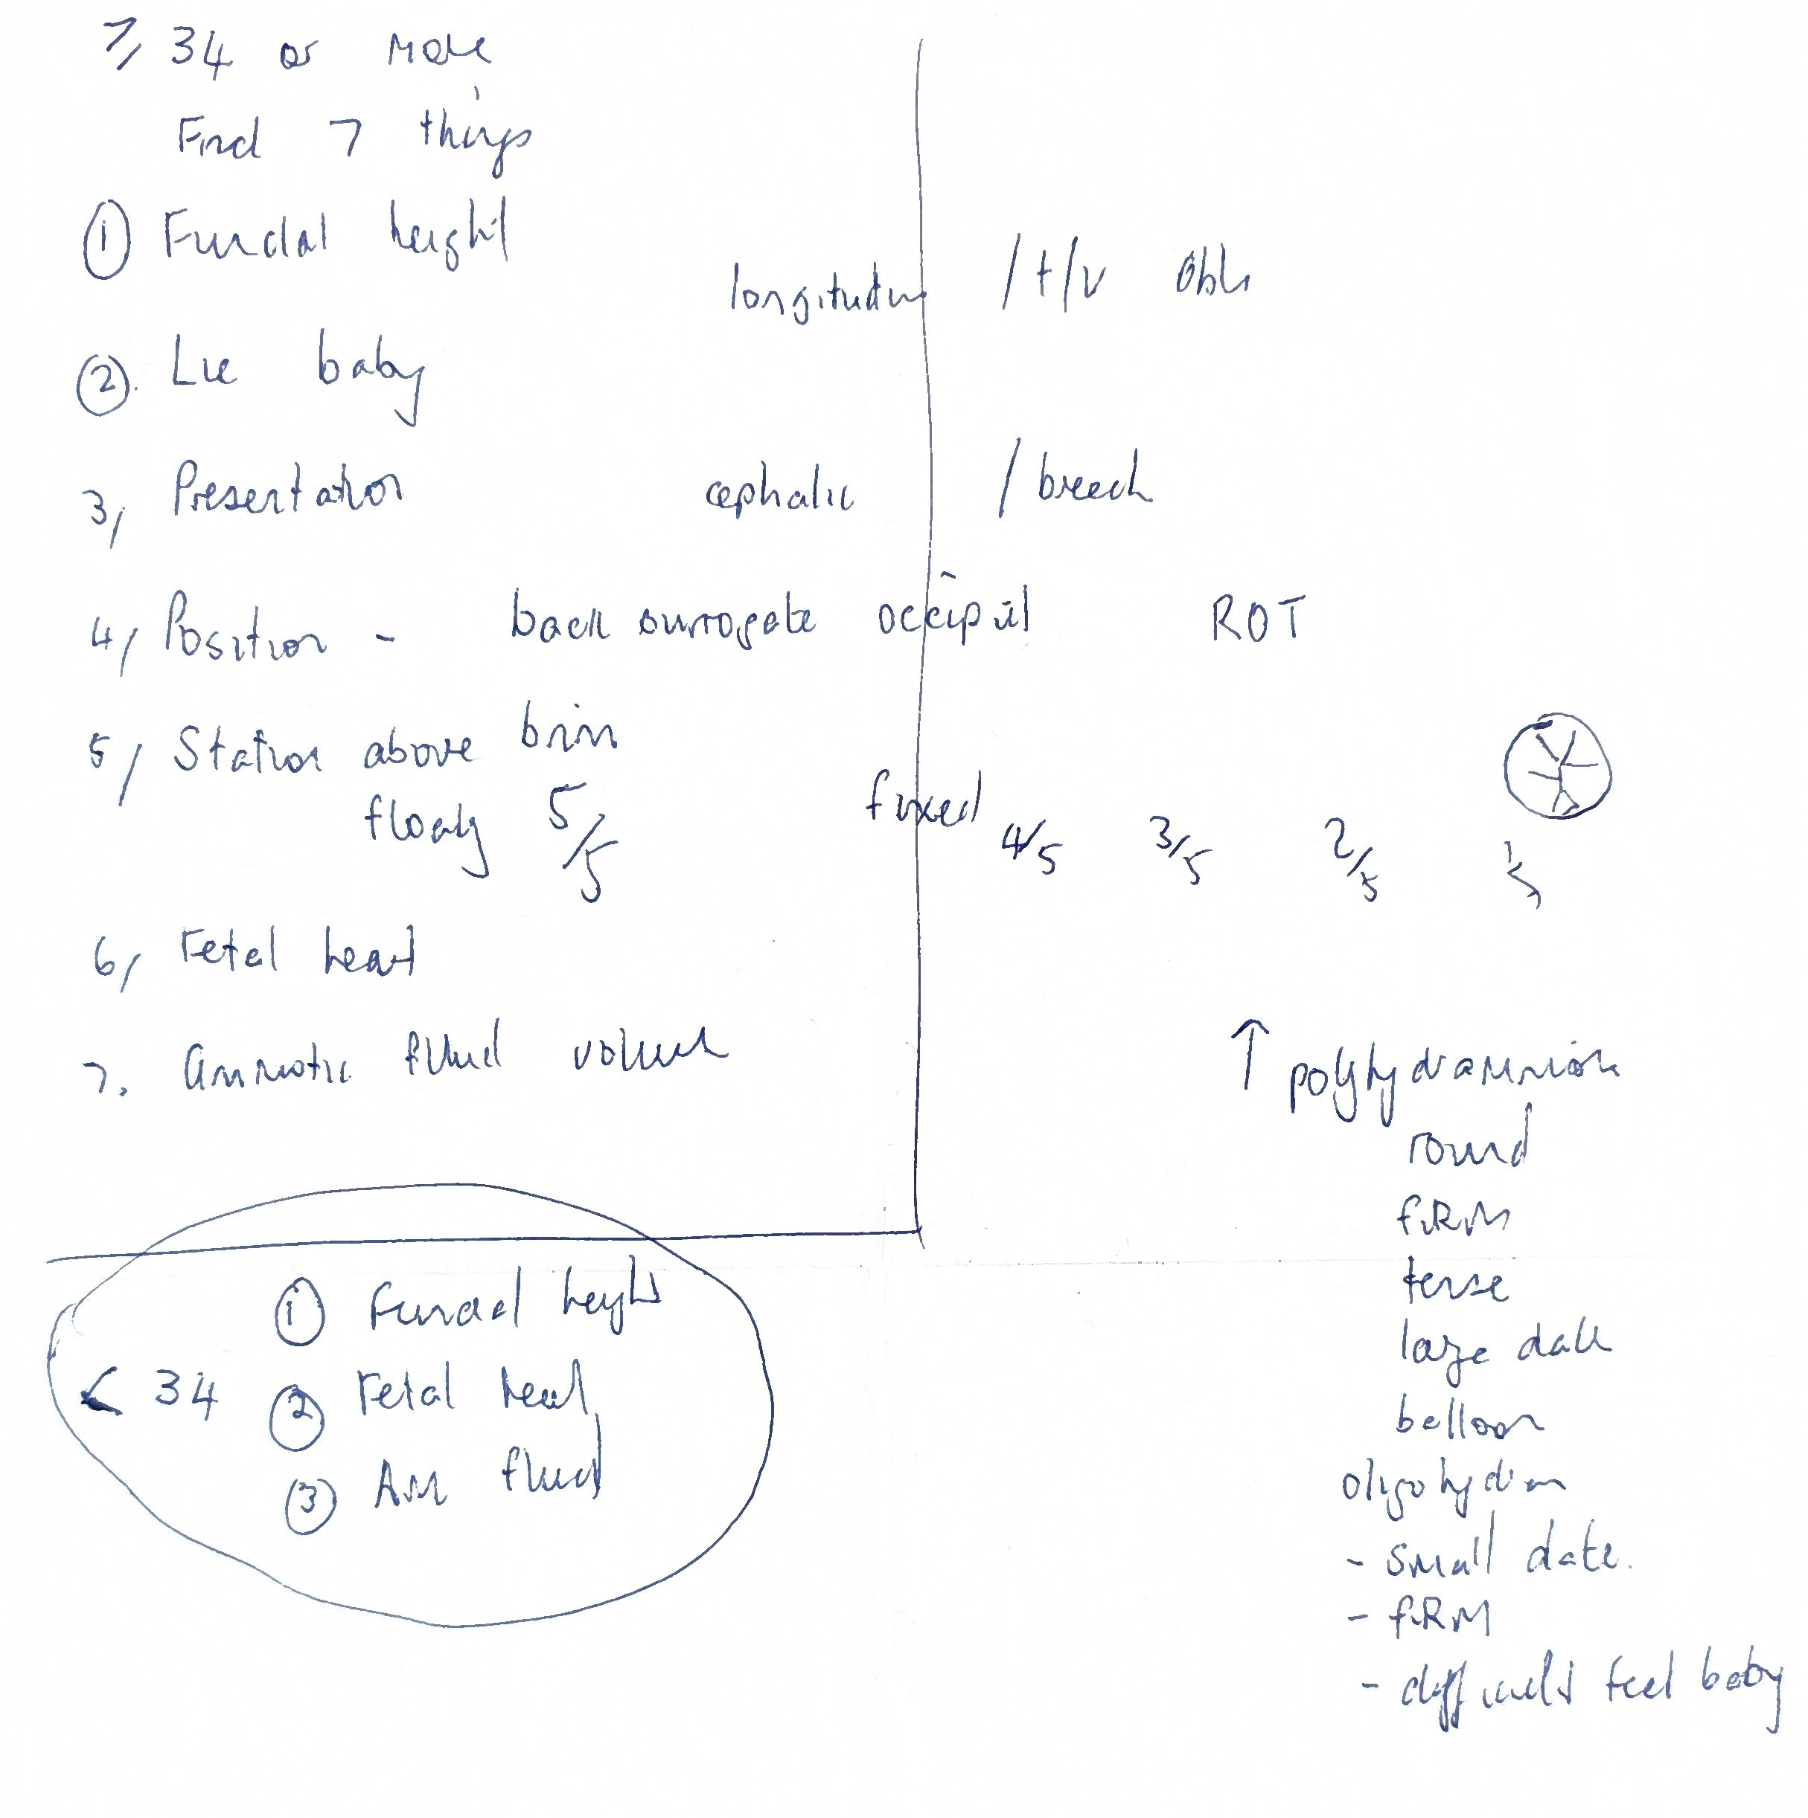 ≥ 34 or more
Find 7 things
① Fundal height
longitudin / t/v Obli
② Lie baby
3, Presentation cephalic / breech
4, Position - back surrogate occiput ROT
5, Station above brim
floatg 5/5 fixed 4/5 3/5 2/5 1/5
6, Fetal heart
7. Amniotic fluid volume
↑ polyhydramnios
round
fiRM
tense
large date
balloon
oligohydram
- small date.
- fiRM
- difficult feel baby
① Fundal height
< 34 ② Fetal heart
③ Am fluid